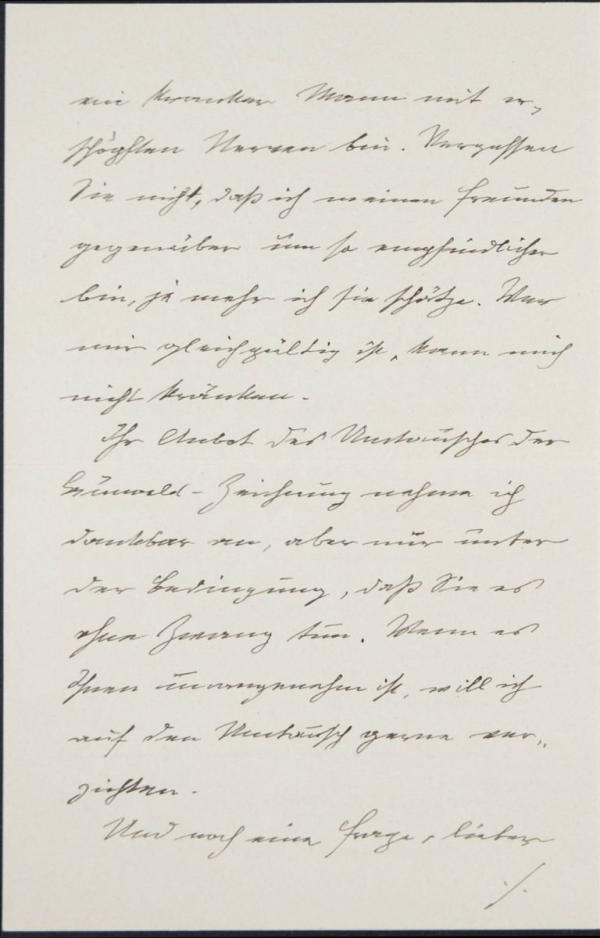 ein kranker Mann mit er-
schöpften Nerven bin. Vergessen
Sie nicht, daß ich meinen Freunden
gegenüber um so empfindlicher
bin, je mehr ich sie schätze. Wer
mir gleichgültig ist, kann mich
nicht kränken.
Ihr Anbot des Umtausches der
Grünwald-Zeichnung nehme ich
dankbar an, aber nur unter
der Bedingung, daß Sie es
ohne Zwang tun. Wenn es
Ihnen unangenehm ist, will ich
auf den Umtausch gerne ver-
zichten.
Und noch eine Frage, lieber
./.